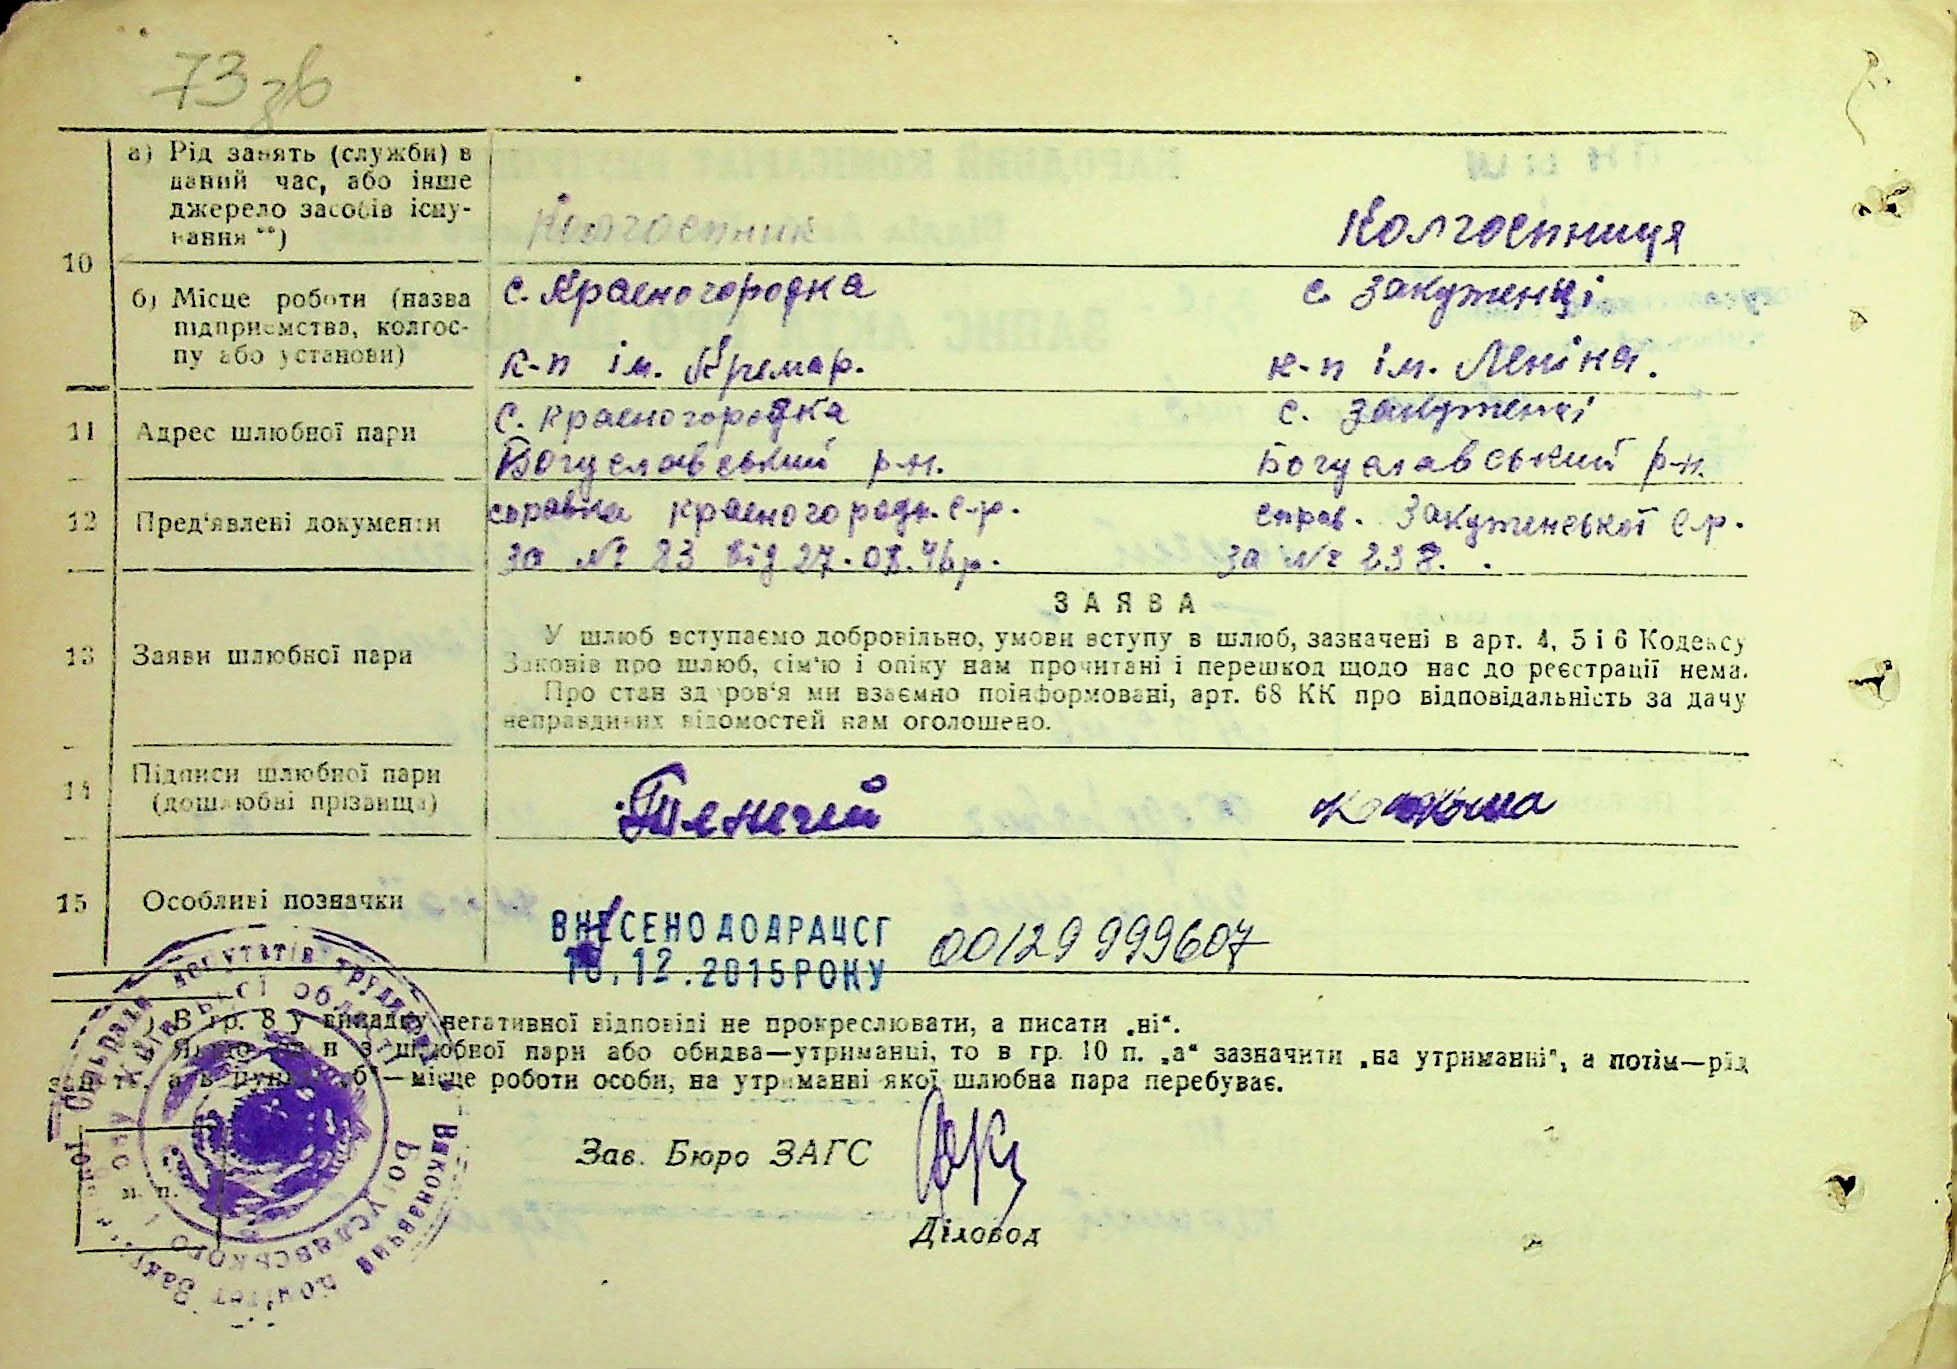 73 зв
10
а) Рід занять (служби) в
даний час, або інше
джерело засобів існу-
вання **)
Колгоспник
Колгоспниця
б) Місце роботи (назва
підприємства, колгос-
пу або установи)
с. Красногородка
с. Закутенці
к-п ім.
к-п ім. Леніна.
11 Адрес шлюбної пари
с. Красногородка
с. Закутенці
Богуславський р-н.
Богуславський р-н.
12 Пред'явлені документи
справка красногородн. с-р.
справ. Закутенської с-р.
за № 83 від 27.08.46р.
за № 238.
13 Заяви шлюбної пари
ЗАЯВА
У шлюб вступаємо добровільно, умови вступу в шлюб, зазначені в арт. 4, 5 і 6 Кодексу
Законів про шлюб, сім'ю і опіку нам прочитані і перешкод щодо нас до реєстрації нема.
Про стан здоров'я ми взаємно поінформовані, арт. 68 КК про відповідальність за дачу
неправдивих відомостей нам оголошено.
14 Підписи шлюбної пари
(дошлюбні прізвища)
15 Особливі позначки
ВНЕСЕНО ДО ДРАЦСГ
12.2015 РОКУ
00129999607
) В гр. 8 у випадку негативної відповіді не прокреслювати, а писати „ні“.
Якщо один з шлюбної пари або обидва—утриманці, то в гр. 10 п. „а“ зазначити „на утриманні“, а потім—рід
занять, а в пункті „б“—місце роботи особи, на утриманні якої шлюбна пара перебуває.
Зав. Бюро ЗАГС
Діловод
м. п.
Виконавчий комітет
Богуславського
депутатів трудящих
Київської області